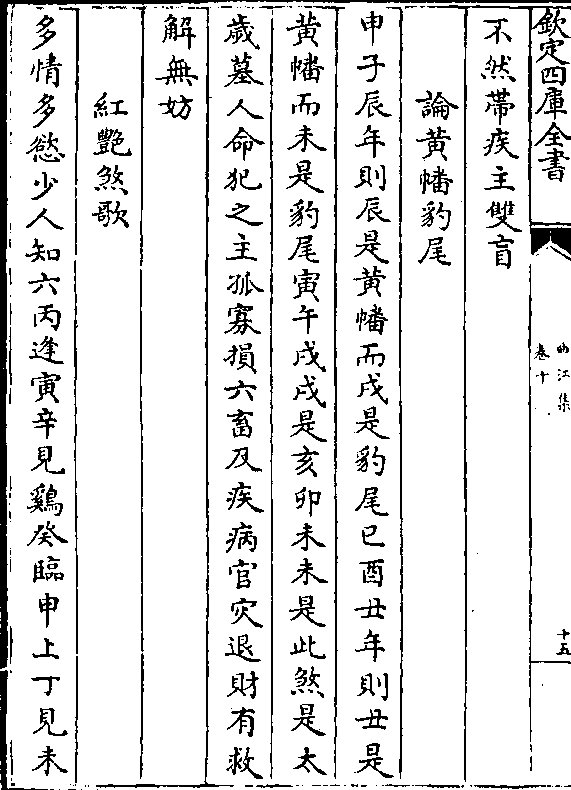 欽定四庫全書
曲江集
卷十
十五
不然帶疾主雙盲
論黃幡豹尾
申子辰年則辰是黃幡而戌是豹尾巳酉丑年則丑是
黃幡而未是豹尾寅午戌戌是亥卯未未是此煞是太
歲墓人命犯之主孤寡損六畜及疾病官灾退財有救
解無妨
紅艷煞歌
多情多慾少人知六丙逢寅辛見鷄癸臨申上丁見未